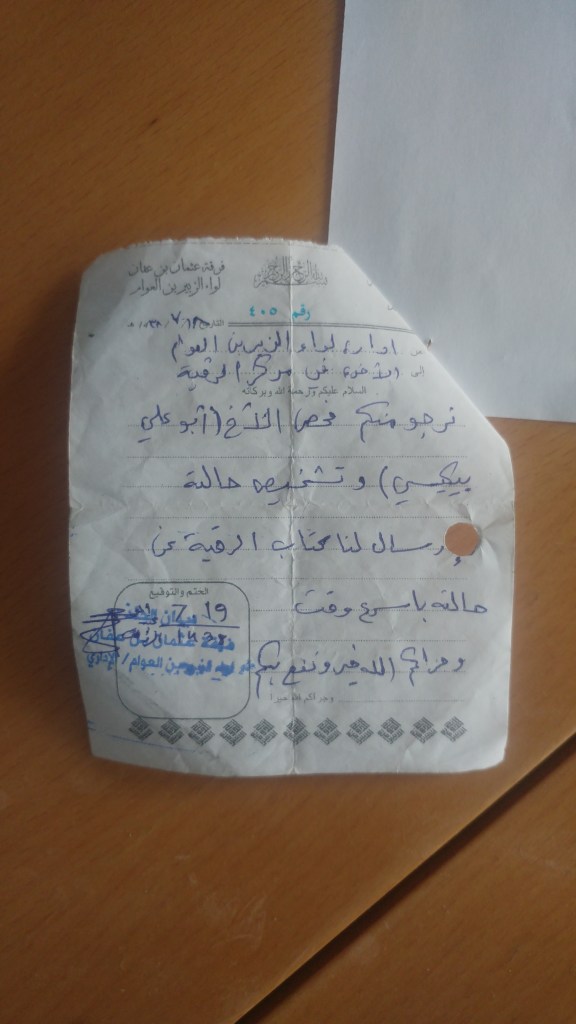 فرقة عثمان بن عفان
لواء الزبير بن العوام
بسم الله الرحمن الرحيم
رقم ٤٠٥
التاريخ
من ادارة لواء الزبير بن العوام
إلى الأخوة في مركز الرقية
السلام عليكم ورحمة الله وبركاته
نرجو منكم فحص الأخ (أبو علي
بيكسي) وتشخيص حالته
وإرسال لنا كتاب الرقية عن
حالته بأسرع وقت
وجزاكم الله خير ونفع بكم
وجزاكم الله خيرا
الختم والتوقيع
19 7
لواء الزبير بن العوام / الإداري